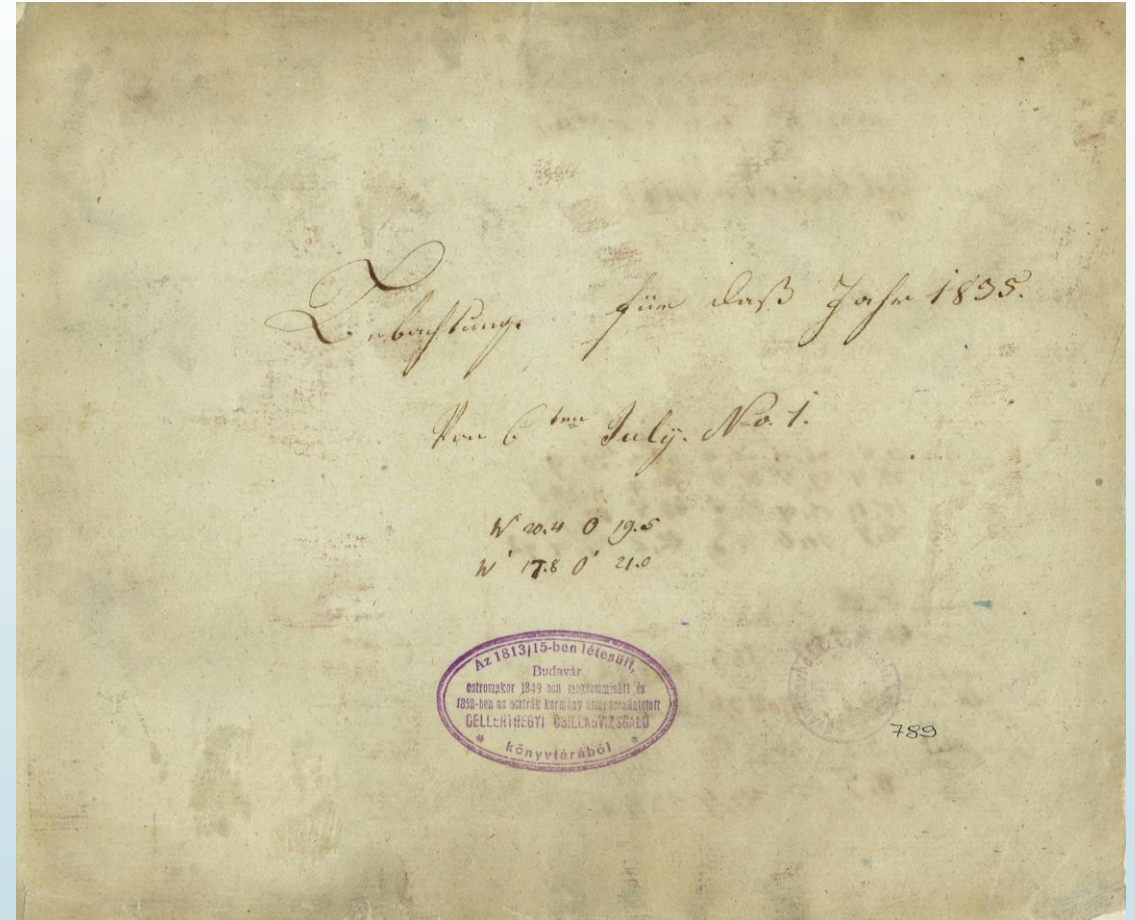 Bebachtung für daß Jahr 1835.
Von 6ten July. No. 1.
W 20.4 O 19.5
W' 17.8 O' 21.0
Az 1813/15-ben létesült,
Budavár
ostromakor 1849 ben megsemmisült és
1852-ben az osztrák kormány által beszüntetett
GELLÉRTHEGYI CSILLAGVIZSGÁLÓ
* könyvtárából *
789